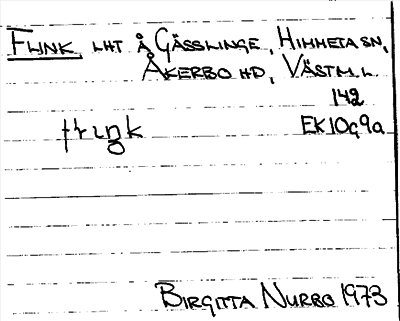 FLINK, LHT Å GÄSSLINGE, HIMMETA SN,
ÅKERBO HD, VÄSTM. L.
142
EK10g9a
BIRGITTA NURBO 1973